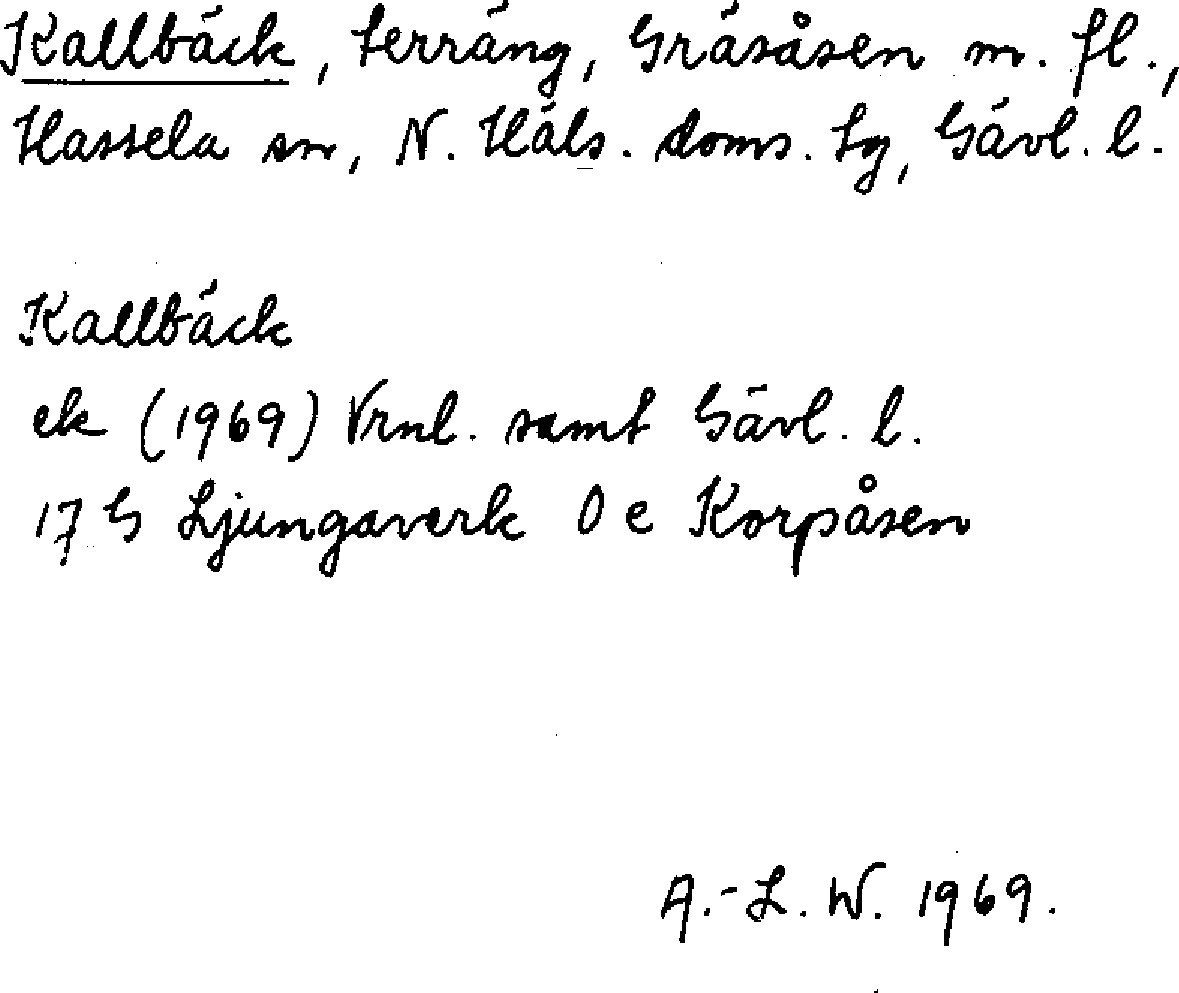 Kallbäck, terräng, Gräsåsen m. fl.,
Hassela sn, N. Häls. doms. tg, Gävl. l.
Kallbäck
ek (1969) Vrnl. samt Gävl. l.
17 G Ljungaverk O e Korpåsen
A.-L. W. 1969.